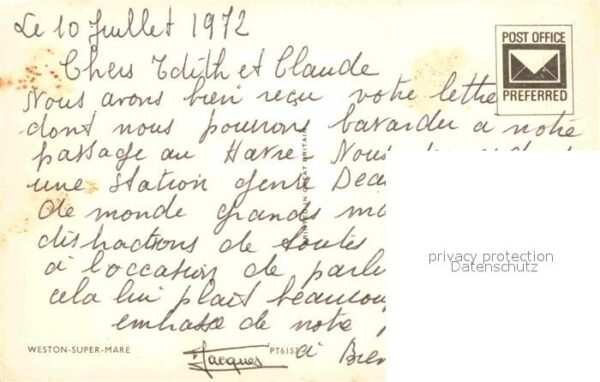 Le 10 Juillet 1972
POST OFFICE
PREFERRED
Chers Edith et Claude
Nous avons bien reçu votre lettre
dont nous pourrons bavarder à notre
passage au Havre. Nous
une station genre Deau
de monde grands ma
distractions de toutes
à l'occasion de parle
cela lui plait beaucoup
embrasse de notre
à Bien
Jacques
PRINTED IN GREAT BRITAIN
WESTON-SUPER-MARE
PT6157
privacy protection
Datenschutz